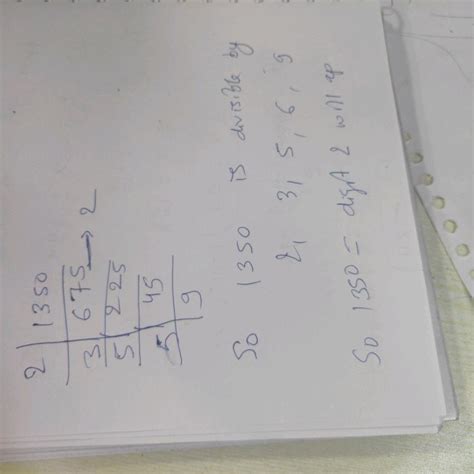 2 | 1350
3 | 675 → 2
5 | 225
5 | 45
9
So 1350 is divisible by
2, 3, 5, 6, 9
So 1350 = digit 2 will up